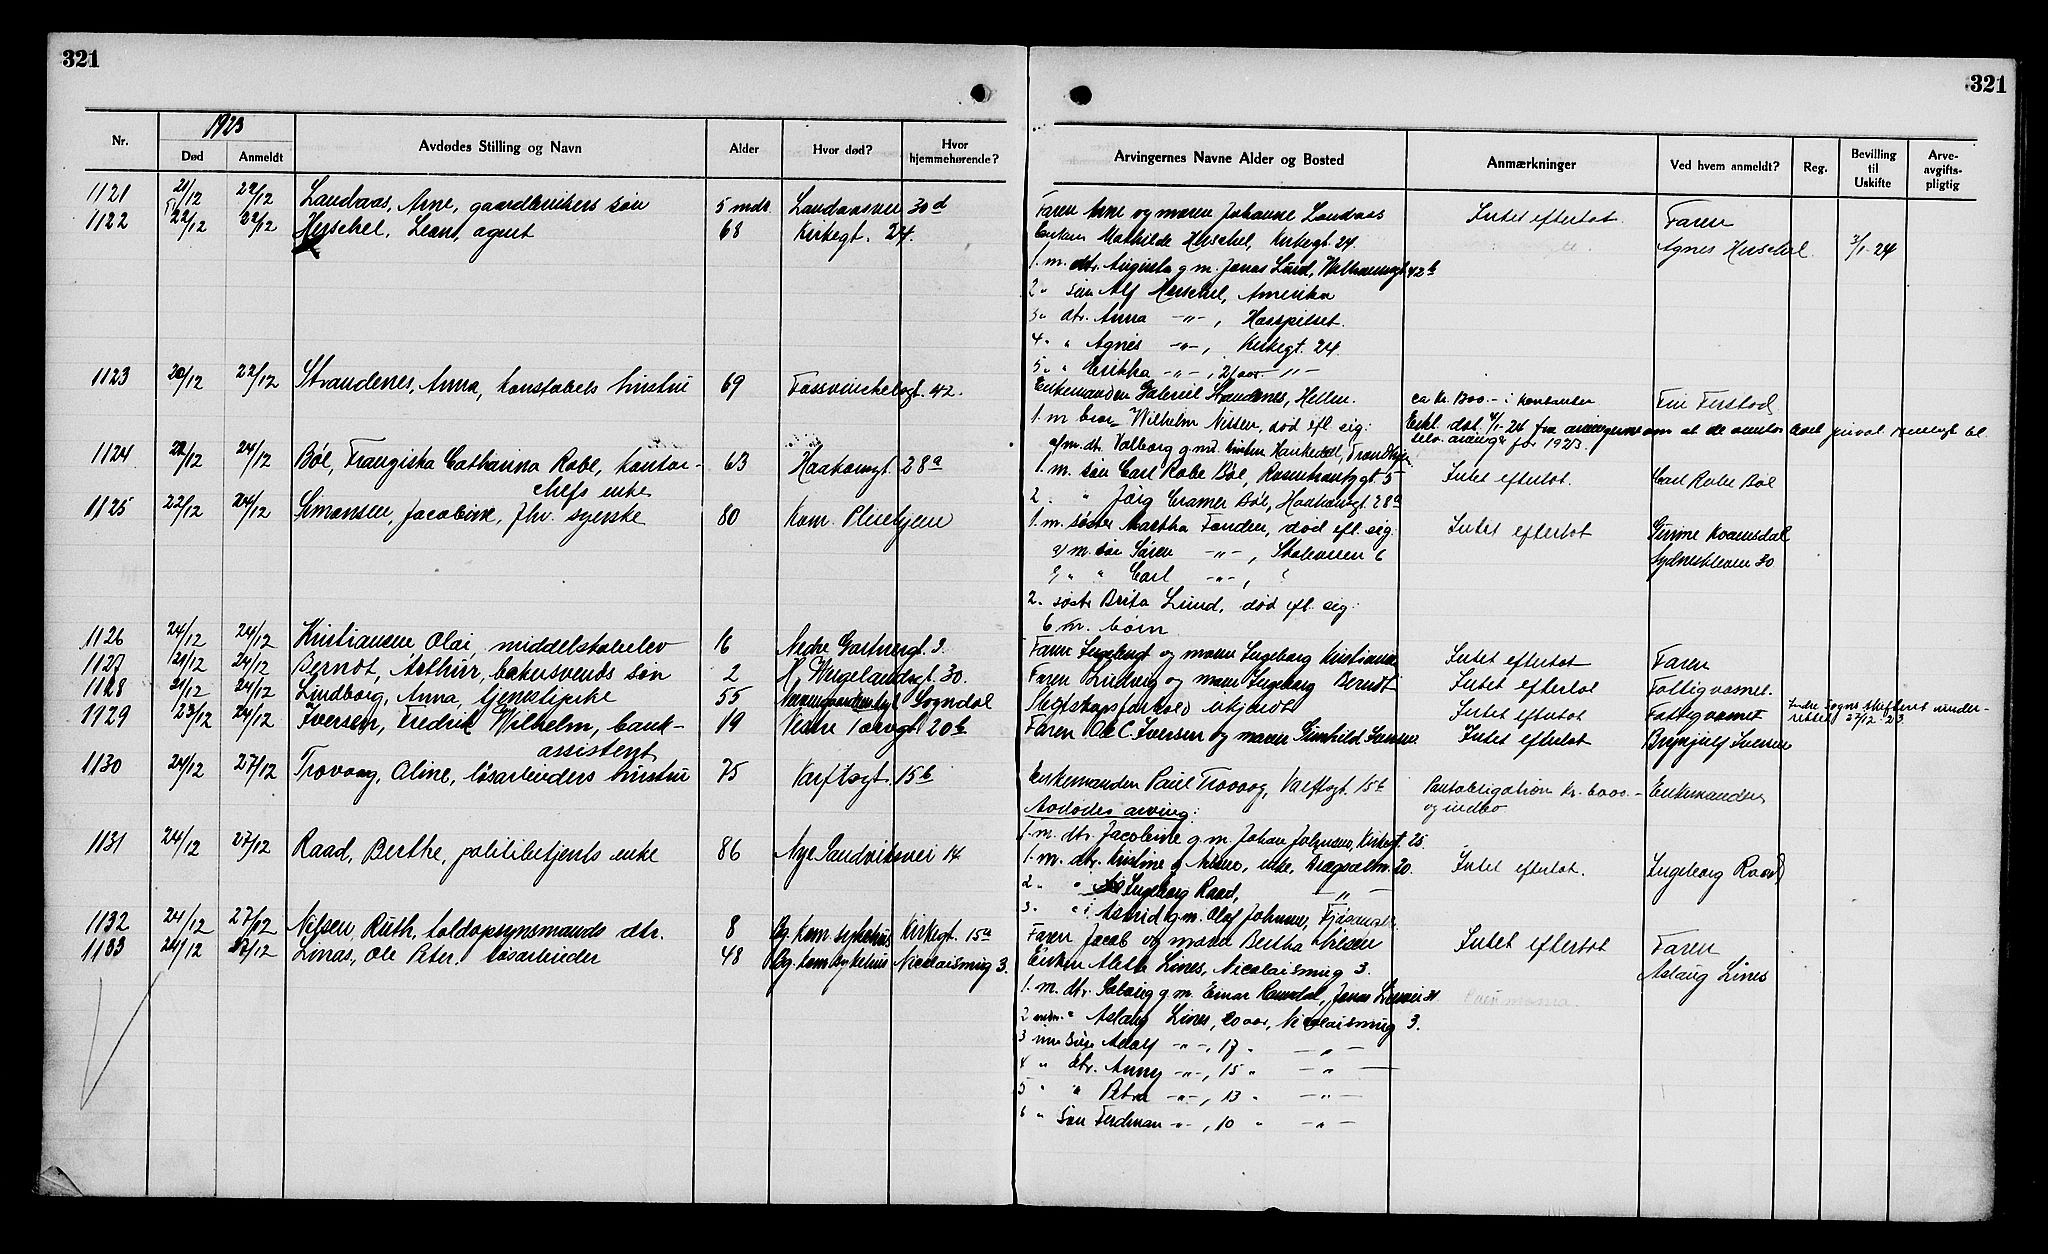 321
321
1923
Nr.
Død
Anmeldt
Avdødes Stilling og Navn
Alder
Hvor død?
Hvor hjemmehørende?
Arvingernes Navne Alder og Bosted
Anmærkninger
Ved hvem anmeldt?
Reg.
Bevilling til Uskifte
Arveavgiftspligtig
1121 21/12 22/12 Landaas, Arne, gaardbrukers søn 5 mdr. Landaasvei 30d
Faren Arne og moren Johanne Landaas Intet efterlot. Faren
1122 22/12 22/12 Herschel, Leon, agent 68 Kirkegt. 24.
Enken Mathilde Herschel, Kirkegt. 24. Agnes Herschel. 3/1-24
1. m. dtr. Augusta g.m. Jonas Lund, 42b
2 " søn Alf Herschel, Amerika
3 " dtr. Anna -"-, Hosspitset.
4 " " Agnes -"-, Kirkegt. 24.
5 " " Erikka -"-, 21 aar -"-
1123 20/12 22/12 Strandenes, Anna, konstabels hustru 69 Fossvinckelsgt. 42.
Enkemanden Gabriel Strandenes, Hellen. ca Kr. 800.- i kontanter
1. m. bror Wilhelm Nissen, død efl. sig: Erkl. dat. 4/1-24 fra
a/ m. dtr. Valborg g.m. for 1923.
1124 22/12 24/12 Bøe, Frangiska Catharina Rabe, kontorchefs enke 63 Haakonsgt. 28a
1. m. søn Carl Rabe Bøe, Rosenkrantzgt. 5 Intet efterlot. Carl Rabe Bøe
2. " " Jörg Cramer Bøe, Haakonsgt. 28a
1125 22/12 24/12 Simonsen, Jacobine, fhv. syerske 80 Kom. Pleiehjem
1. m. søster Martha Fanden, død efl. sig. Intet efterlot
a/ m. søn Søren -"-, Skoleveien 6 Sydneskleven 30
" " Carl -"-, ?
2. søster Brita Lund, død efl. sig:
6 m. børn
1126 24/12 24/12 Kristiansen Olai, middelskoleelev 16 Nedre Gartnergt. 3.
Faren og moren Ingeborg Kristiansen Intet efterlot Faren
1127 21/12 24/12 Berndt, Arthur, bakersvends søn 2 H. Wergelandsgt. 30.
Faren Ludvig og moren Ingeborg Berndt Intet efterlot Fattigvæsnet.
1128 21/12 24/12 Lindborg, Anna, tjenestepike 55 Sogndal
Slegtskapsforhold ukjendt Intet efterlot Fattigvæsnet
1129 23/12 24/12 Iversen, Fredrik Wilhelm, bankassistent 19 Vestre Torvgt. 20b
Faren Ole C. Iversen og moren Gunhild Iversen. Intet efterlot Brynjulf Iversen
1130 24/12 27/12 Trovaag, Oline, løsarbeiders hustru 75 Varftsgt. 15b
Enkemanden Paul Trovaag, Varftsgt. 15b Pantobligation Kr. 6000.- og indbo Enkemanden
Avdødes arving:
1. m. dtr. Jacobine g.m. Johan Johnsen, Kirkegt. 25.
1131 24/12 27/12 Raad, Berthe, politibetjents enke 86 Nye Sandviksvei 14
1. m. dtr. Kristine enke, 20. Intet efterlot. Ingeborg Raad
2 " " Ingeborg Raad, -"-
3 " " Astrid g.m. Olaf Johnsen, Fjøsanger
1132 24/12 27/12 Nilsen, Ruth, toldopsynsmands dtr. 8 Bg. kom. sykehus Kirkegt. 15a
Faren Jacob og moren Bertha Nilsen Intet efterlot Faren
1133 24/12 27/12 Linas, Ole Peter. løsarbeider 48 Bg. kom. sykehus Nicolaismug 3.
Enken Alette Lines, Nicolaismug 3. Aslaug Lines
1. m. dtr. Solveig g.m. Einar
2 " Aslaug Lines, 20 aar, Nicolaismug 3.
3 " søn Adolf -"-, 17 " -"-
4 " dtr. Anny -"-, 15 " -"-
5 " " Petra -"-, 13 " -"-
6 " søn Ferdinan -"-, 10 " -"-